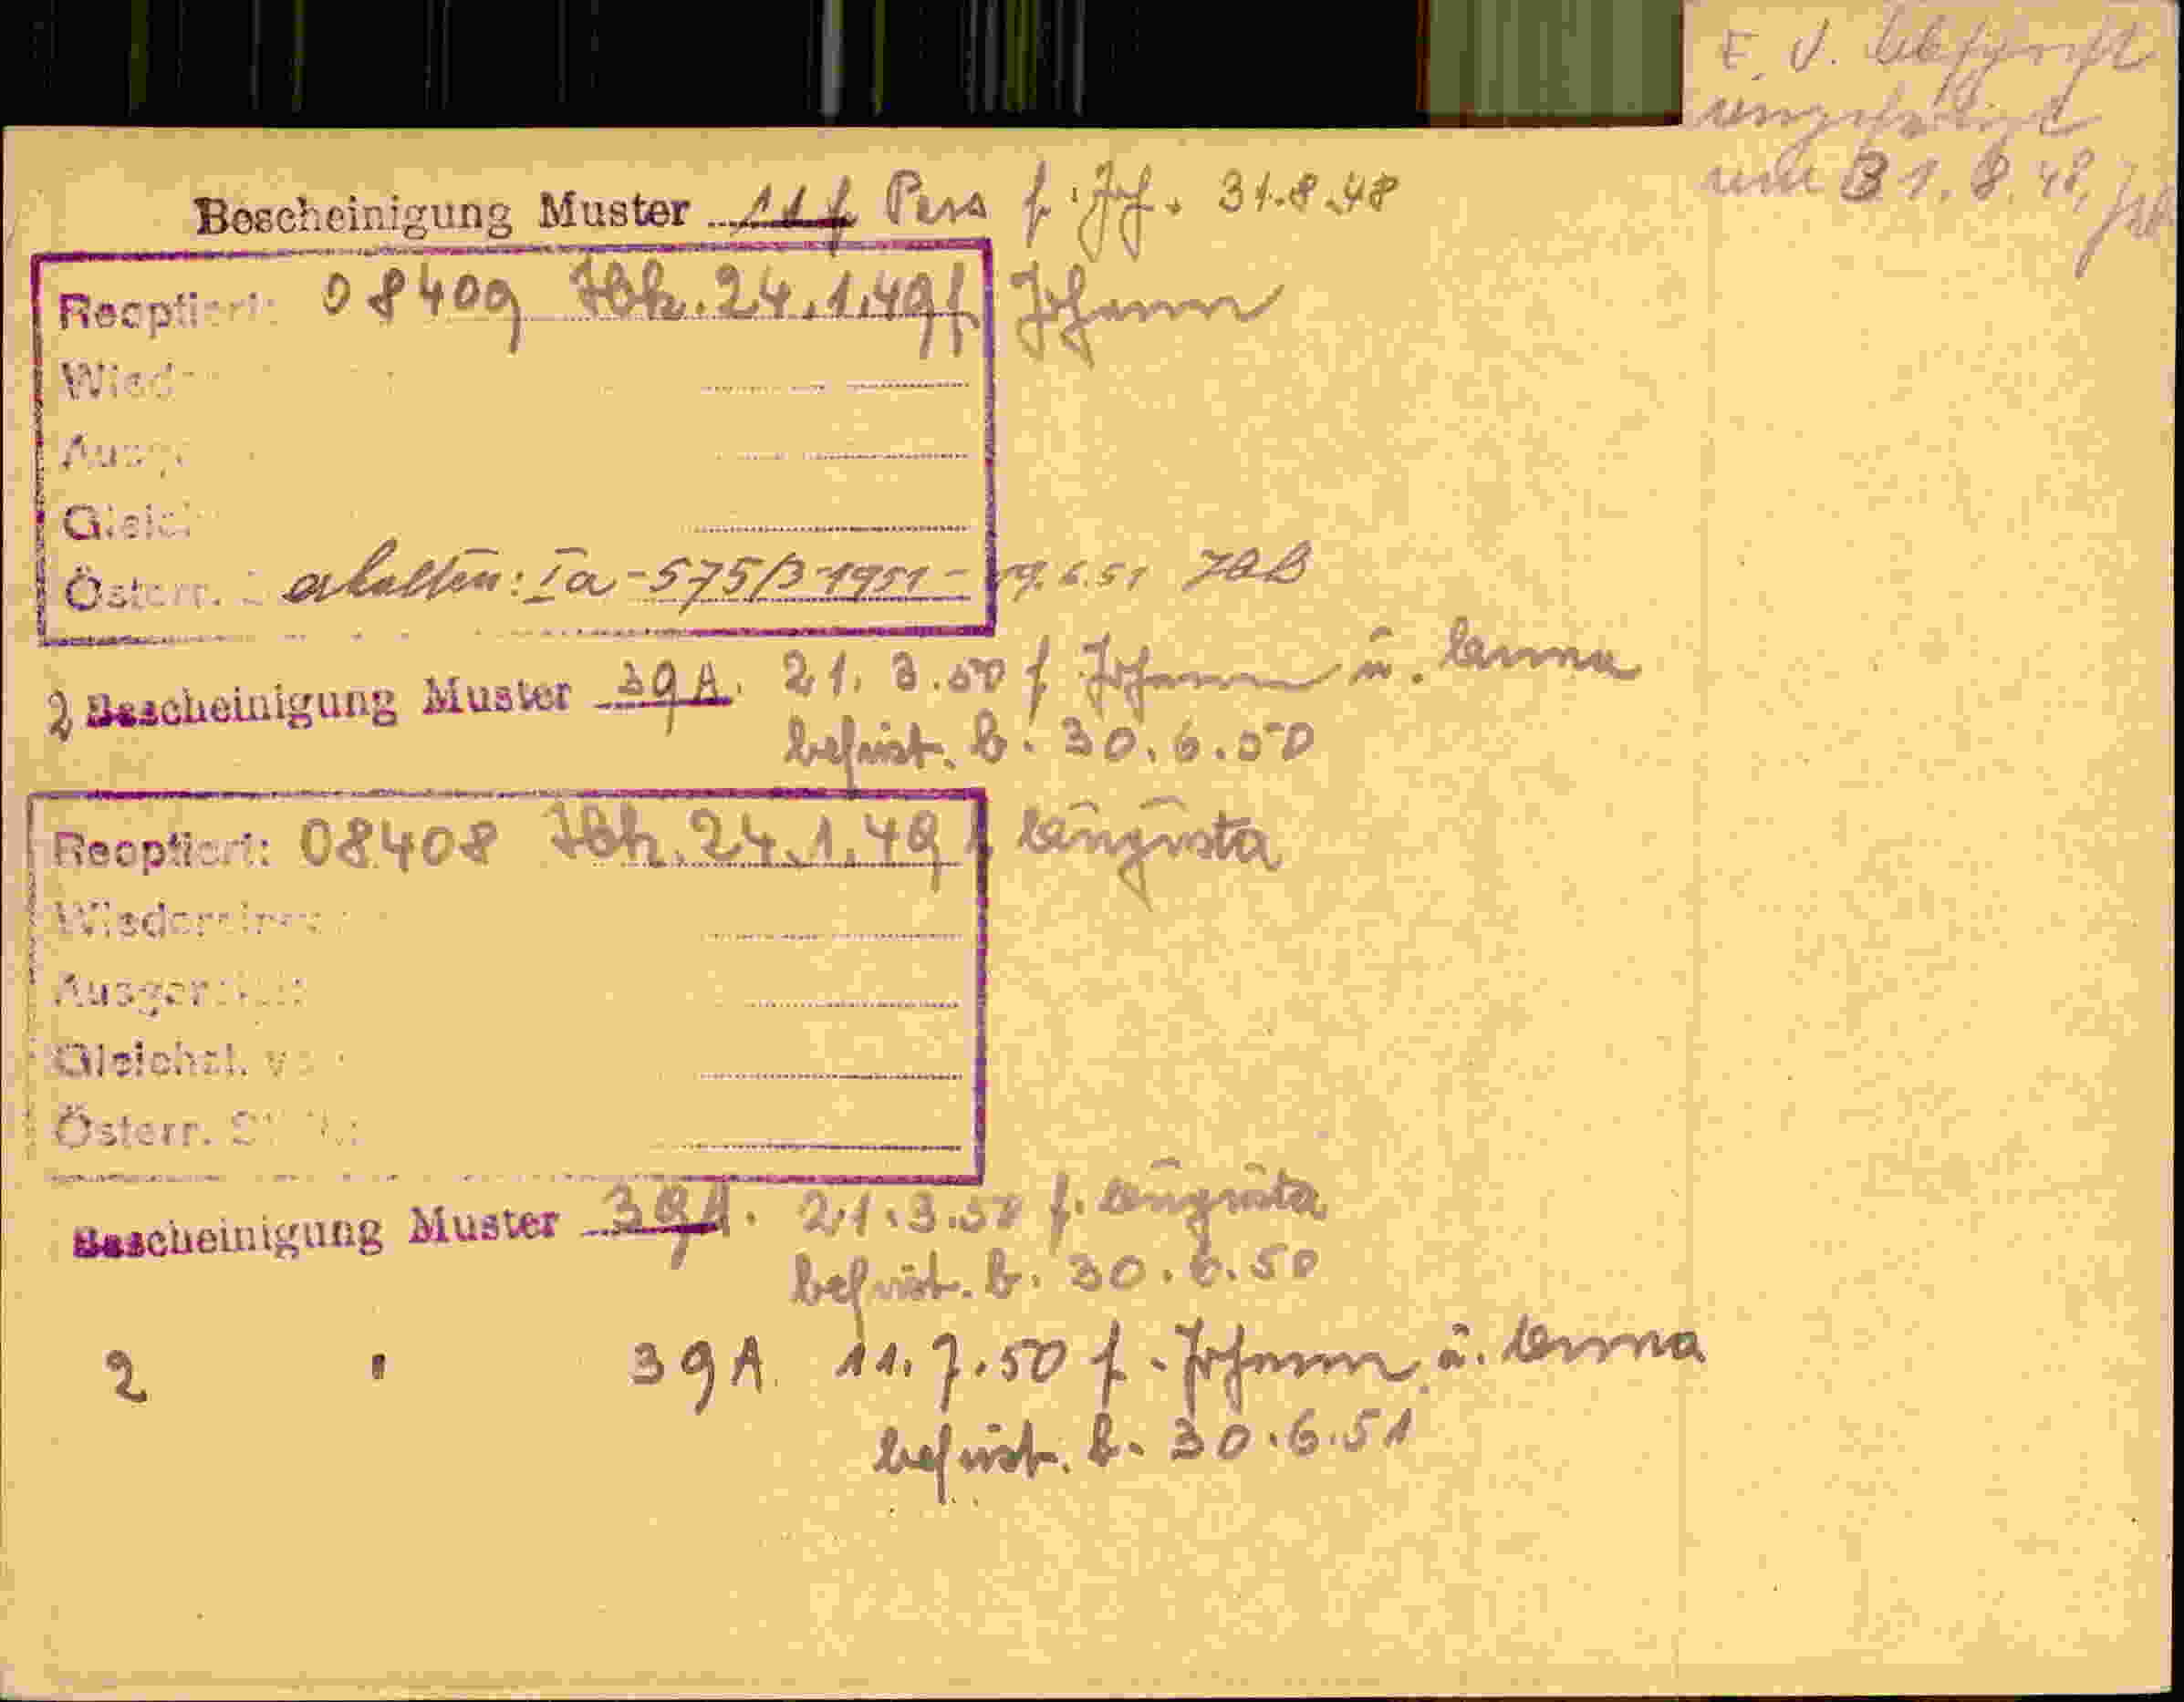 E. V. Abschrift
ausgefolgt
am 31. 8. 48,
Bescheinigung Muster 11 f Pass f. Joh. 31.8.48
Reoptiert: 08409 Ibk. 24.1.49 f Johann
Wied
Ausge
Gleich
Österr. erhalten: Ia-575/3-1951- 19.6.51
2 Bescheinigung Muster 39A. 21. 3.50 f Johann u. Anna
befrist. b. 30.6.50
Reoptiert: 08408 Ibk. 24.1.49 f Augusta
Wiedereinge
Ausger
Gleichst. v
Österr. St
Bescheinigung Muster 39A. 21.3.50 f. Augusta
befrist. b. 30.6.50
2 " 39A. 11.7.50 f. Johann u. Anna
befrist. b. 30.6.51